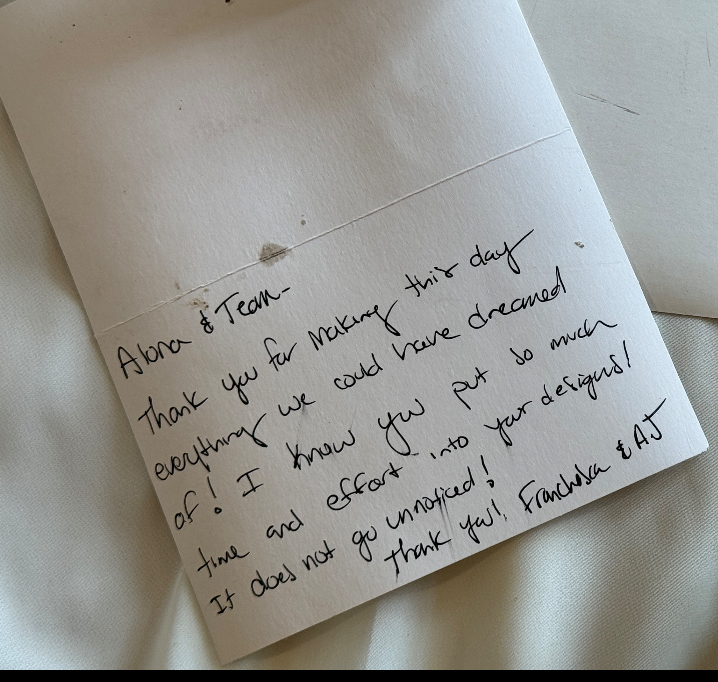 Alona & Team-
Thank you for making this day
everything we could have dreamed
of! I know you put so much
time and effort into your designs!
It does not go unnoticed!
Thank you!, Franchesca & AJ